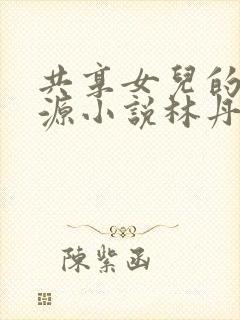 共享女兒的
源小說林丹
陳紫函